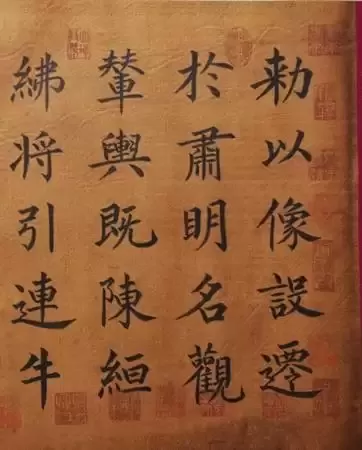 勑以像設遷
於肅明名觀
輦輿既陳絙
紼将引連牛